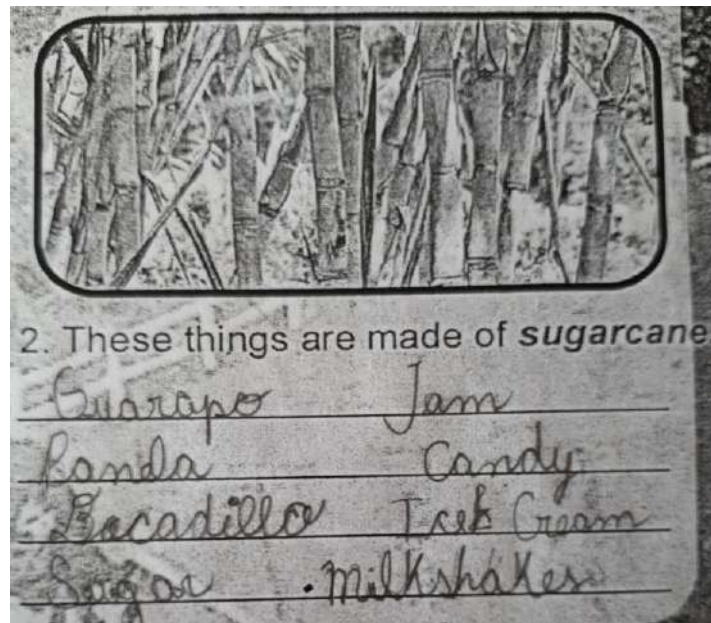 2. These things are made of sugarcane
Guarapo Jam
Panda Candy
Bocadillo Icek Cream
Sugar .Milkshakes